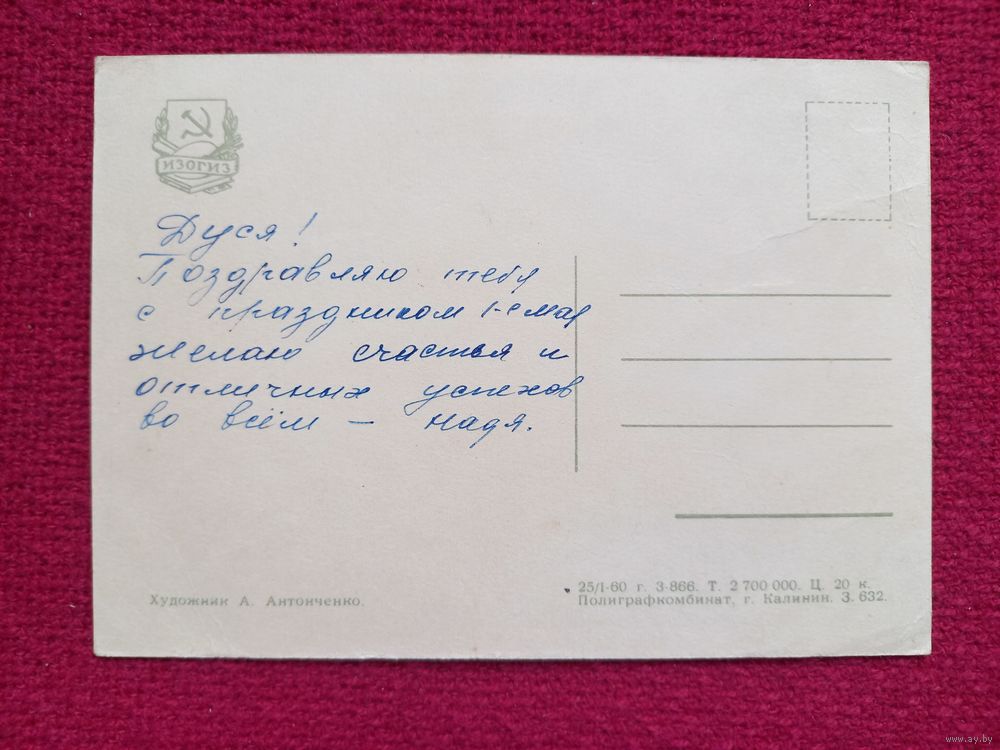 ИЗОГИЗ
Дуся!
Поздравляю тебя
с праздником 1-е мая
желаю счастья и
отличных успехов
во всём – Надя.
Художник А. Антонченко.
25/I-60 г. З-866. Т. 2 700 000. Ц. 20 к.
Полиграфкомбинат, г. Калинин. З. 632.
www.ay.by